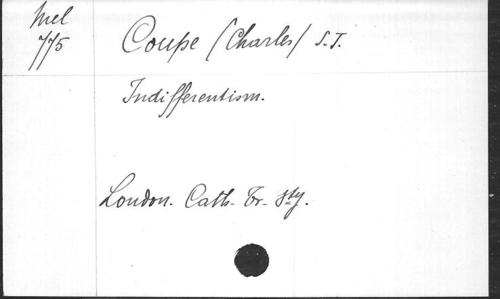 Mel
775
Coupe (Charles) S.J.
Indifferentism.
London. Cath. Tr. Sty.